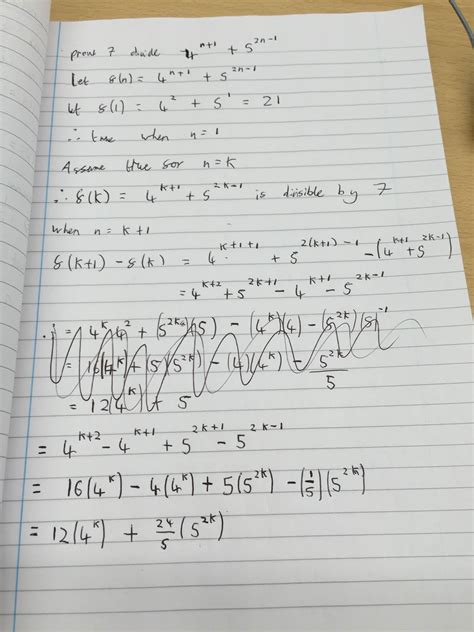 prove 7 divide 4^{n+1} + 5^{2n-1}
Let f(n) = 4^{n+1} + 5^{2n-1}
if f(1) = 4^2 + 5^1 = 21
∴ true when n = 1
Assume true for n = k
∴ f(k) = 4^{k+1} + 5^{2k-1} is divisible by 7
when n = k+1
f(k+1) - f(k) = 4^{k+1+1} + 5^{2(k+1)-1} - (4^{k+1} + 5^{2k-1})
= 4^{k+2} + 5^{2k+1} - 4^{k+1} - 5^{2k-1}
= 4^k 4^2 + (5^{2k})(5) - (4^k)(4) - (5^{2k})(5)^{-1}
= 16(4^k) + (5)(5^{2k}) - (4)(4^k) - \frac{5^{2k}}{5}
= 12(4^k) + 5
= 4^{k+2} - 4^{k+1} + 5^{2k+1} - 5^{2k-1}
= 16(4^k) - 4(4^k) + 5(5^{2k}) - (\frac{1}{5})(5^{2k})
= 12(4^k) + \frac{24}{5}(5^{2k})